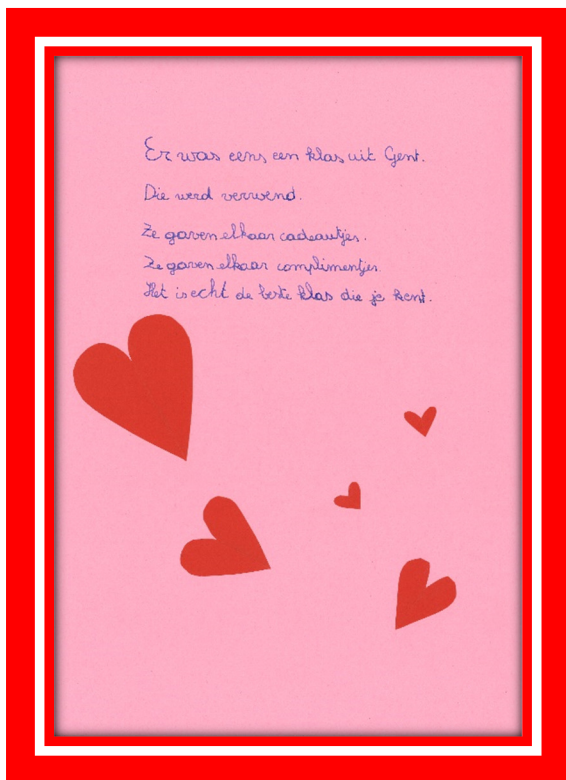 Er was eens een klas uit Gent.
Die werd verwend.
Ze gaven elkaar cadeautjes.
Ze gaven elkaar complimentjes.
Het is echt de beste klas die je kent.